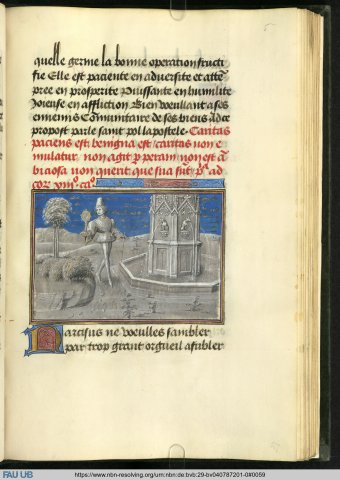 5
quelle germe la bonne operation fructi
fie Elle est paciente en adversite et attē
pree en prosperite Puissante en humilite
Joieuse en affliction Bien voeullant a ses
ennemis Comunitaire de ses biens Ad ce
propost parle saint pol lapostele Caritas
paciens est benigna est / caritas non e
mulatur non agit p peram non est ā
biciosa non querit que sua sūt pᵃ ad
cor xiijᵒ caᵒ
Narcisus ne voeulles sambler
par trop grant orgueil afubler
FAU UB
https://www.nbn-resolving.org/urn:nbn:de:bvb:29-bv040787201-0#0059